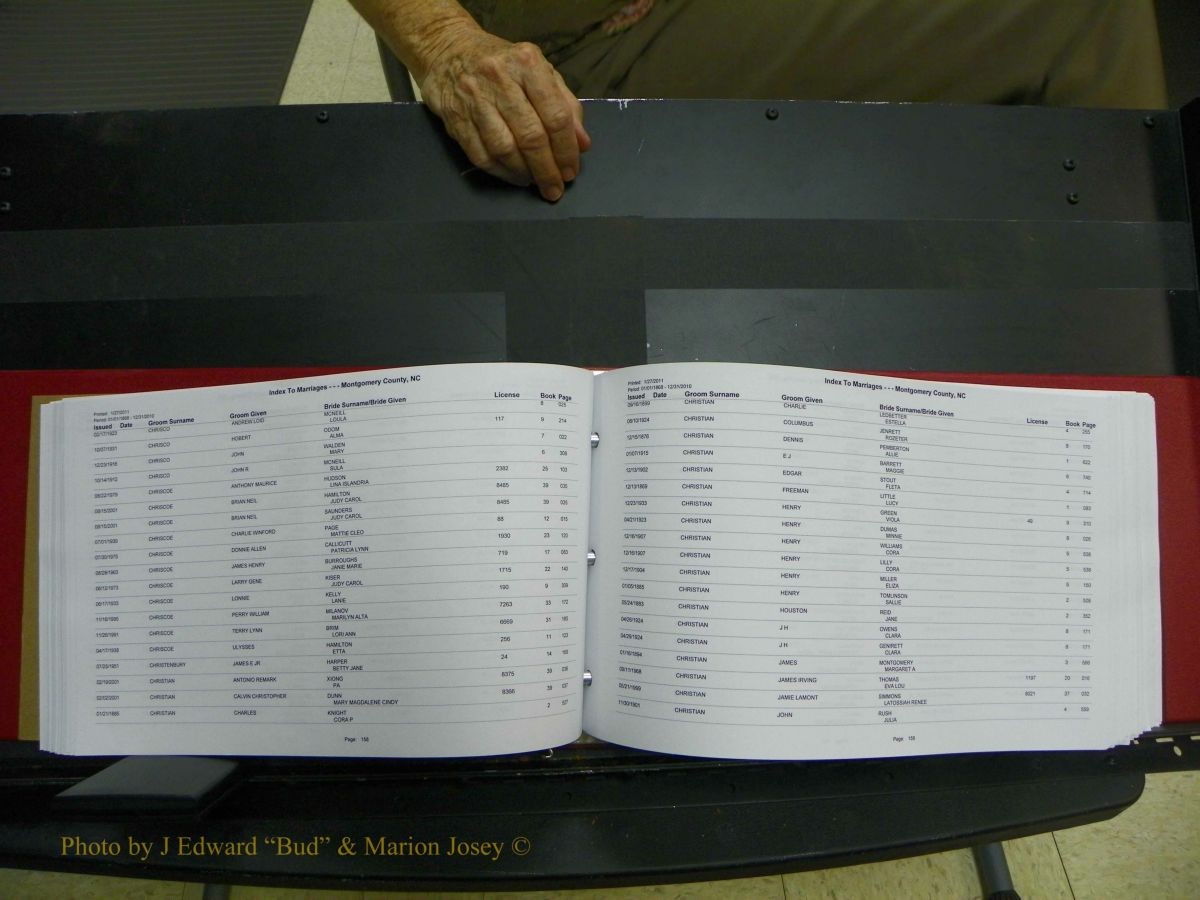 Printed: 1/27/2011
Period: 01/01/1868 - 12/31/2010
Index To Marriages - - - Montgomery County, NC
Issued Date Groom Surname Groom Given Bride Surname/Bride Given License Book Page
03/17/1923 CHRISCO ANDREW LOID MCNEILL 8 025
LOULA
10/07/1931 CHRISCO HOBERT ODOM 117 9 214
ALMA
12/23/1918 CHRISCO JOHN WALDEN 7 022
MARY
10/14/1912 CHRISCO JOHN R MCNEILL 6 308
SULA
06/22/1979 CHRISCOE ANTHONY MAURICE HUDSON 2382 25 103
LINA ISLANDRIA
08/15/2001 CHRISCOE BRIAN NEIL HAMILTON 8485 39 035
JUDY CAROL
08/15/2001 CHRISCOE BRIAN NEIL SAUNDERS 8485 39 035
JUDY CAROL
07/01/1939 CHRISCOE CHARLIE WINFORD PAGE 88 12 015
MATTIE CLEO
07/30/1975 CHRISCOE DONNIE ALLEN CALLICUTT 1930 23 120
PATRICIA LYNN
CHRISCOE JAMES HENRY BURROUGHS 719 17 063
JANIE MARIE
CHRISCOE LARRY GENE KISER 1715 22 140
JUDY CAROL
06/17/1933 CHRISCOE LONNIE KELLY 190 9 309
LANIE
CHRISCOE PERRY WILLIAM MILANOV 7263 33 172
MARILYN ALTA
11/26/1991 CHRISCOE TERRY LYNN BRIM 6669 31 185
LORI ANN
04/17/1938 CHRISCOE ULYSSES HAMILTON 256 11 123
ETTA
07/25/1951 CHRISTENBURY JAMES E JR HARPER 24 14 193
BETTY JANE
02/19/2001 CHRISTIAN ANTONIO REMARK XIONG 8375 39 036
PA
02/02/2001 CHRISTIAN CALVIN CHRISTOPHER DUNN 8366 39 037
MARY MAGDALENE CINDY
01/21/1885 CHRISTIAN CHARLES KNIGHT 2 577
CORA P
Page: 158
Printed: 1/27/2011
Period: 01/01/1868 - 12/31/2010
Index To Marriages - - - Montgomery County, NC
Issued Date Groom Surname Groom Given Bride Surname/Bride Given License Book Page
09/16/1899 CHRISTIAN CHARLIE LEDBETTER 4 255
ESTELLA
08/10/1924 CHRISTIAN COLUMBUS JENRETT 8 170
ROZETER
12/15/1876 CHRISTIAN DENNIS PEMBERTON 1 622
ALLIE
01/07/1915 CHRISTIAN E J BARRETT 6 740
MAGGIE
12/13/1902 CHRISTIAN EDGAR STOUT 4 714
FLETA
12/13/1869 CHRISTIAN FREEMAN LITTLE 1 093
LUCY
12/23/1933 CHRISTIAN HENRY GREEN 49 9 310
VIOLA
04/21/1923 CHRISTIAN HENRY DUMAS 8 026
MINNIE
12/16/1907 CHRISTIAN HENRY WILLIAMS 5 538
CORA
12/16/1907 CHRISTIAN HENRY LILLY 5 538
CORA
12/17/1904 CHRISTIAN HENRY MILLER 5 150
ELIZA
01/05/1885 CHRISTIAN HENRY TOMLINSON 2 508
SALLIE
05/24/1883 CHRISTIAN HOUSTON REID 2 352
JANE
04/26/1924 CHRISTIAN J H OWENS 8 171
CLARA
04/29/1924 CHRISTIAN J H GENIRETT 8 171
CLARA
01/16/1894 CHRISTIAN JAMES MONTGOMERY 3 566
MARGARET A
08/11/1968 CHRISTIAN JAMES IRVING THOMAS 1197 20 216
EVA LOU
05/21/1999 CHRISTIAN JAMIE LAMONT SIMMONS 8021 37 032
LATOSSIAH RENEE
11/30/1901 CHRISTIAN JOHN RUSH 4 559
JULIA
Page: 159
Photo by J Edward “Bud” & Marion Josey ©